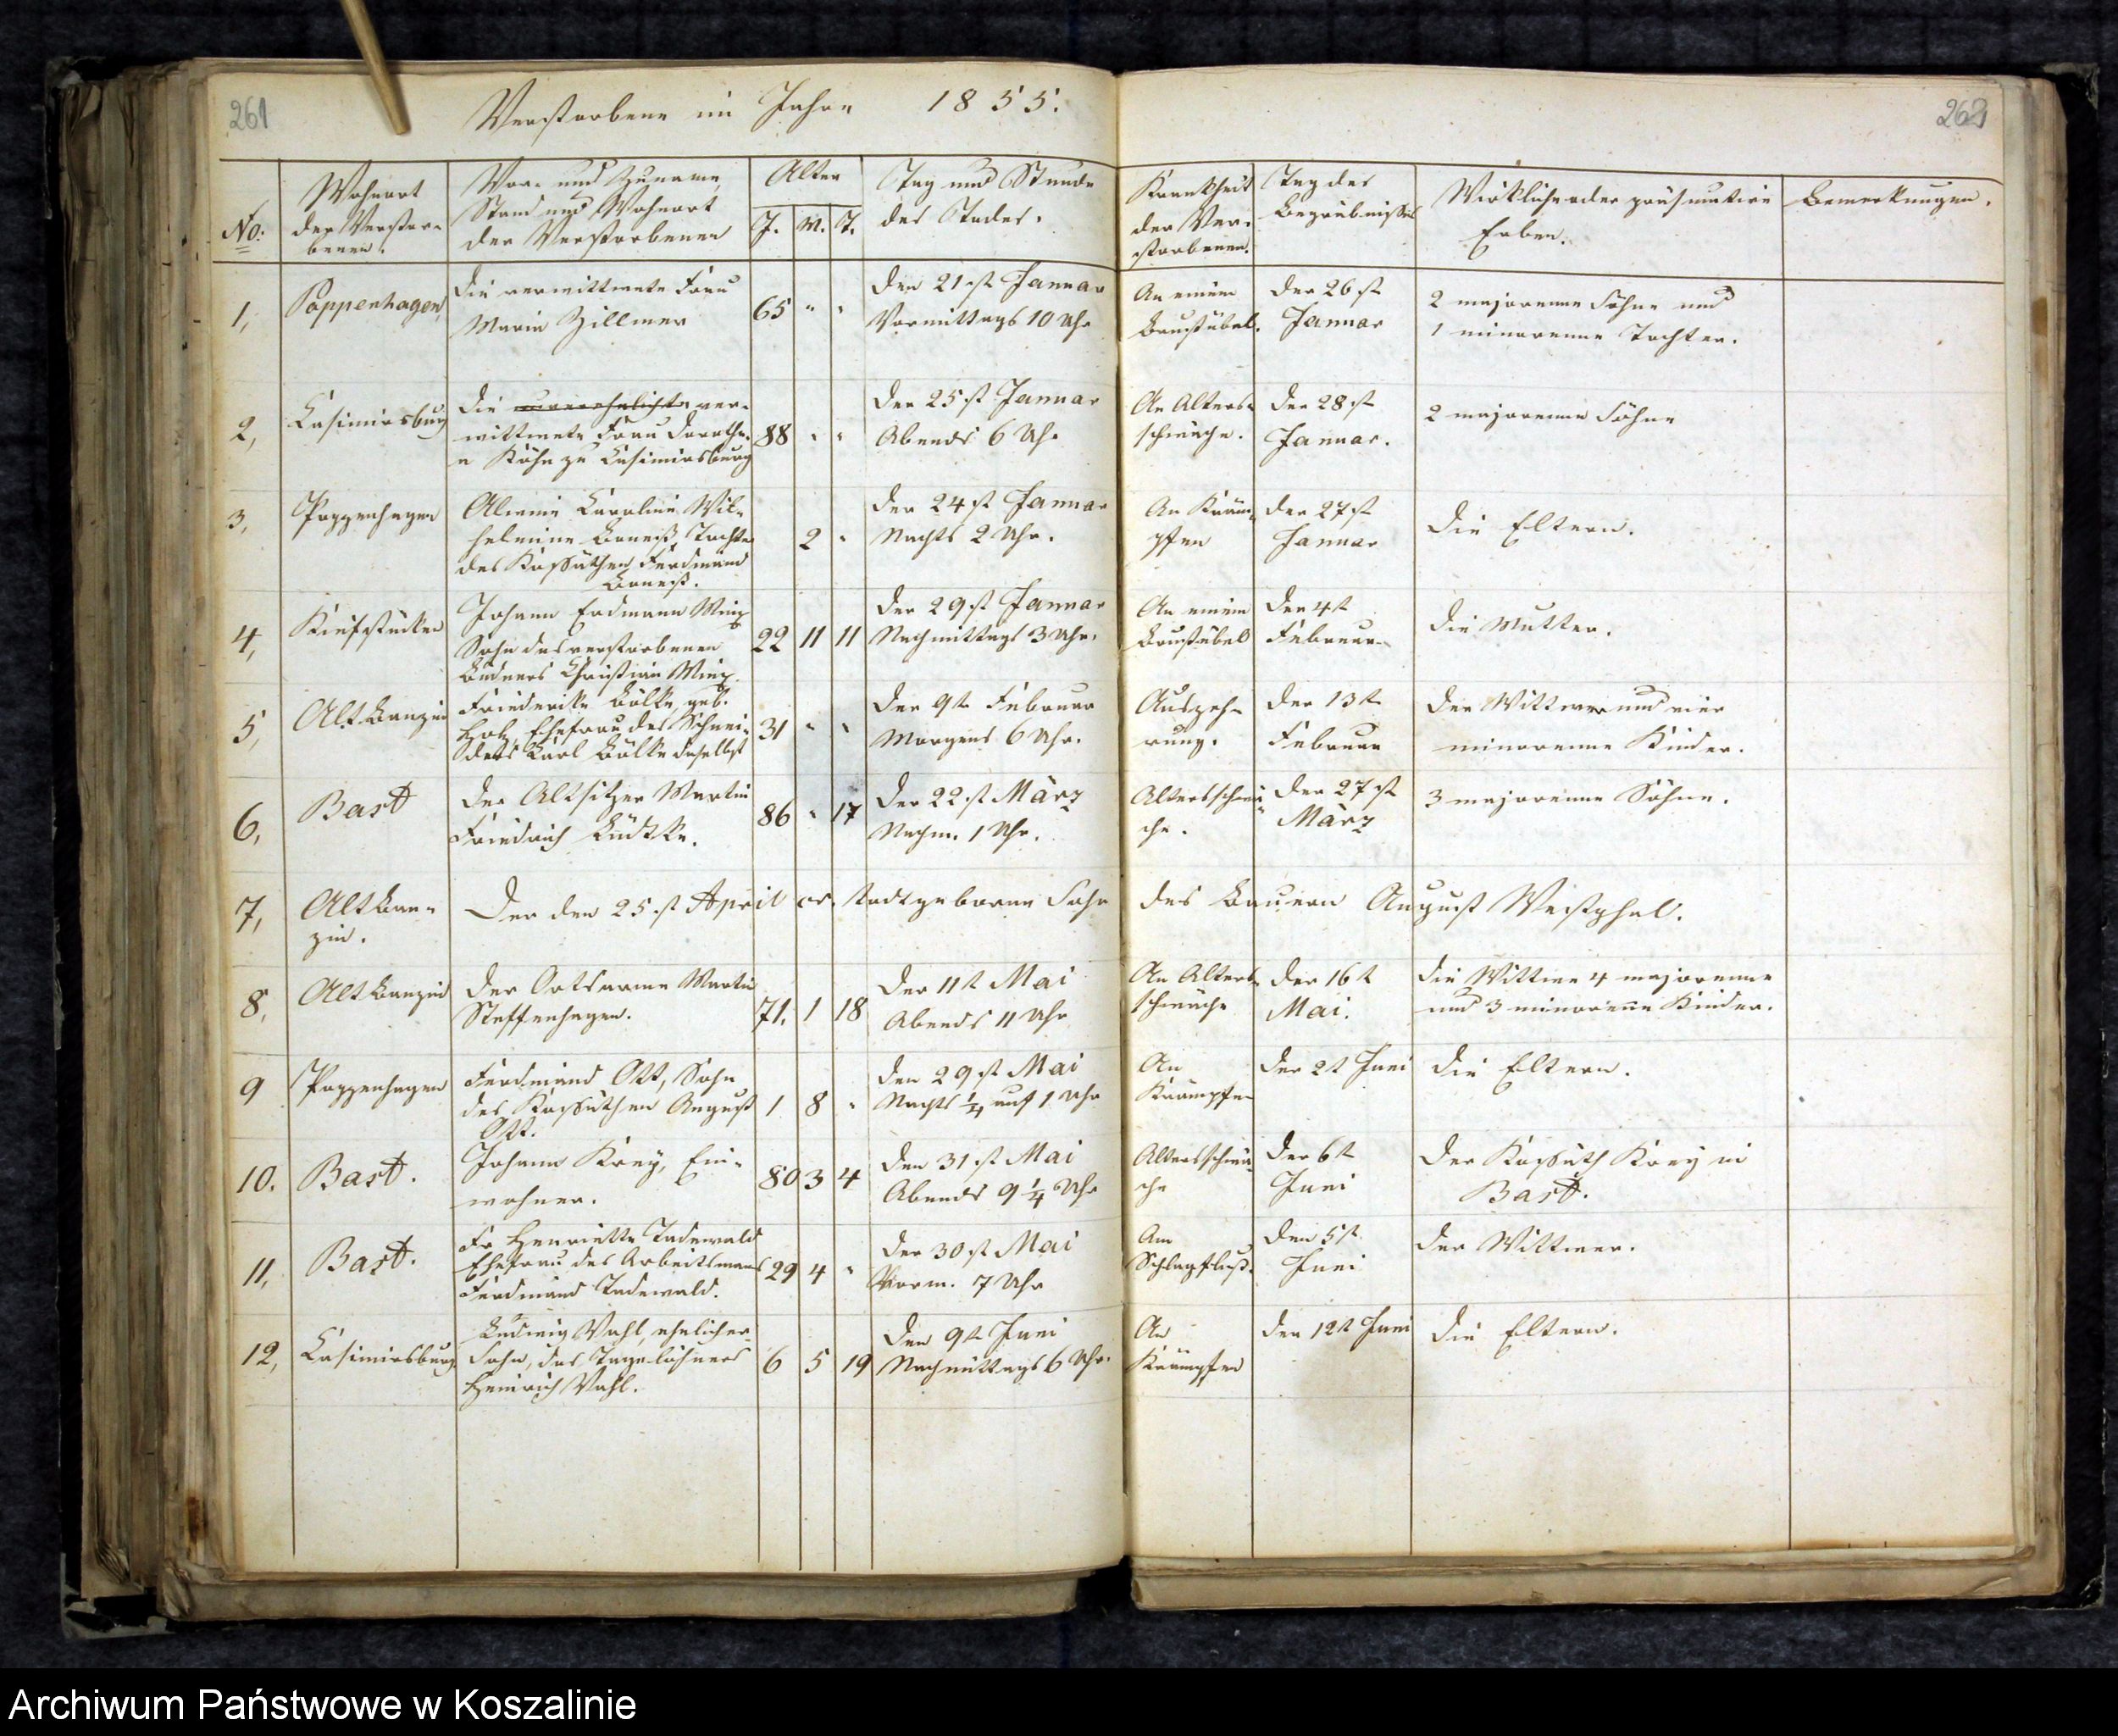 261
Verstorbene im Jahre 1855.
263
No:
Wohnort
der Verstor-
benen.
Vor- und Zuname,
Stand und Wohnort
der Verstorbenen
Alter
J. M. T.
Tag und Stunde
des Todes.
Krankheit
der Ver-
storbenen.
Tag des
Begräbnisses
Wirkliche oder präsumtive
Erben.
Bemerkungen.
1,
Poppenhagen,
Die verwittwete Frau
Maria Zillmer
65 " "
Den 21st Januar
Vormittags 10 Uhr
An einem
Brustübel.
Den 26st
Januar
2 majorenne Söhne und
1 minorenne Tochter.
2,
Casimirsburg
Die unverehelichte ver-
wittwete Frau Dorothe-
a Köhn zu Casimirsburg
88 " "
Den 25st Januar
Abends 6 Uhr
An Alters-
schwäche.
Den 28st
Januar.
2 majorenne Söhne
3,
Poppenhagen
Alwine Caroline Wil-
helmine Borneiß, Tochter
des Kossäthen Ferdinand
Borneiß.
2 "
Den 24st Januar
Nachts 2 Uhr.
An Kräm-
pfen
Den 27st
Januar
Die Eltern.
4,
Kiefstücken
Johann Erdmann
Sohn des verstorbenen
Büdners Christian
22 11 11
Den 29st Januar
Nachmittags 3 Uhr.
An einem
Brustübel
Den 4t
Februar
Die Mutter.
5,
Alt Banzin
Friederike Bölke, geb.
Holz, Ehefrau des Schnei-
ders Karl Bölke daselbst
31 " "
Den 9t Februar
Morgens 6 Uhr.
Auszeh-
rung.
Den 13t
Februar
Der Wittwer und vier
minorenne Kinder.
6,
Bast
Der Altsitzer Martin
Friedrich Lüdtke.
86 " 17
Den 22st März
Nachm. 1 Uhr.
Altersschwä-
che.
Den 27st
März
3 majorenne Söhne.
7,
Alt Ban-
zin.
Der den 25st April cr. todtgeborne Sohn des Bauern August Westphal.
8,
Alt Banzin
Der Ortsarme Martin
Steffenhagen.
71. 1 18
Den 11t Mai
Abends 11 Uhr
An Alters-
schwäche
Den 16t
Mai.
Die Wittwe 4 majorenne
und 3 minorenne Kinder.
9
Poppenhagen
Ferdinand Ott, Sohn
des Kossäthen August
Ott.
1 8 "
Den 29st Mai
Nachts ¼ auf 1 Uhr
An
Krämpfen
Den 2t Juni
Die Eltern.
10.
Bast.
Johann Krey, Ein-
wohner.
80 3 4
Den 31st Mai
Abends 9 ¼ Uhr
Altersschwä-
che
Den 6t
Juni
Der Kossäth Krey in
Bast.
11,
Bast.
Fr Henriette Tadewald
Ehefrau des Arbeitsmanns
Ferdinand Tadewald.
29 4 "
Den 30st Mai
Vorm. 7 Uhr
Am
Schlagfluß.
Den 5t
Juni
Der Wittwer.
12,
Casimirsburg
Ludwig Vahl, ehelicher
Sohn, des Tagelöhners
Heinrich Vahl.
6 5 19
Den 9t Juni
Nachmittags 6 Uhr.
An
Krämpfen
Den 12t Juni
Die Eltern.
Archiwum Państwowe w Koszalinie